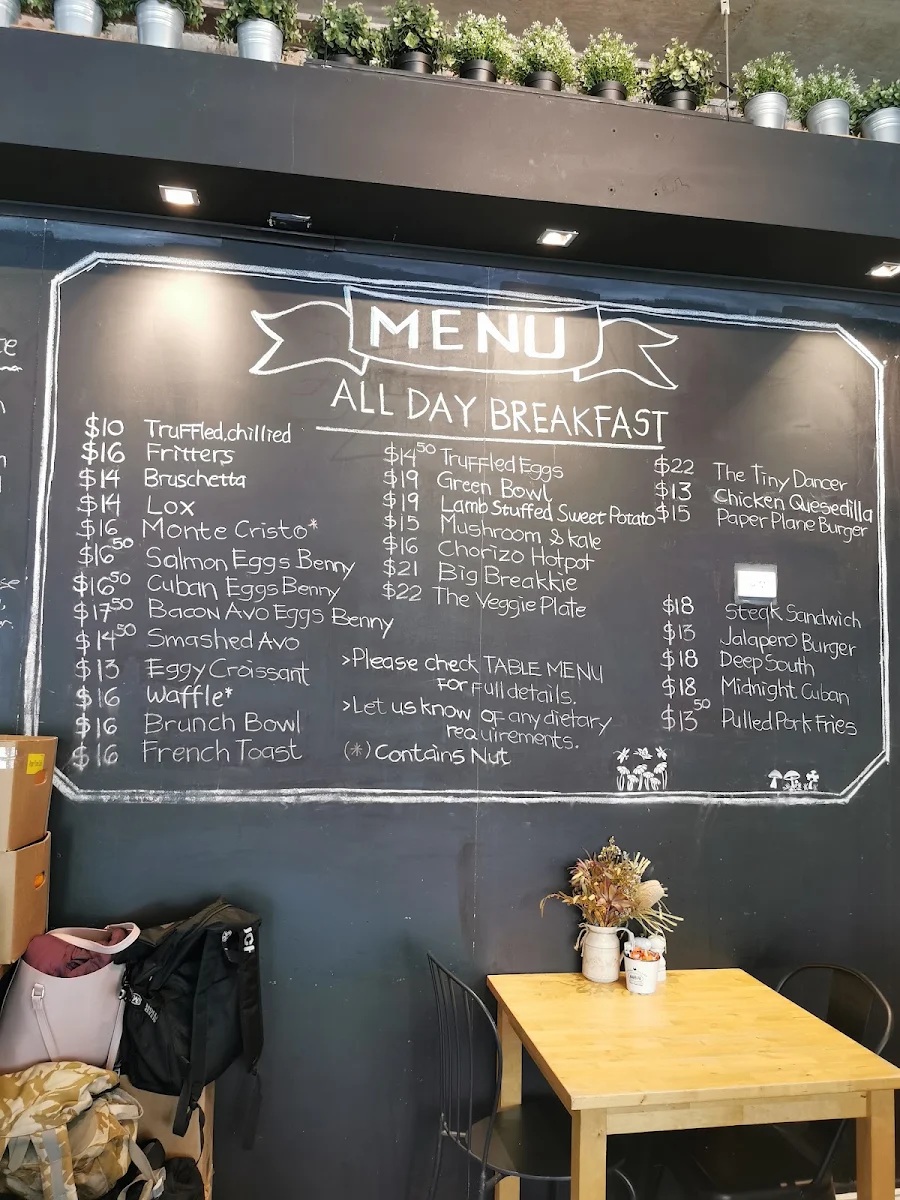 MENU
ALL DAY BREAKFAST
$10 Truffled, chillied
$16 Fritters
$14 Bruschetta
$14 Lox
$16 Monte Cristo*
$16⁵⁰ Salmon Eggs Benny
$16⁵⁰ Cuban Eggs Benny
$17⁵⁰ Bacon Avo Eggs Benny
$14⁵⁰ Smashed Avo
$13 Eggy Croissant
$16 Waffle*
$16 Brunch Bowl
$16 French Toast
$14⁵⁰ Truffled Eggs
$19 Green Bowl
$19 Lamb Stuffed Sweet Potato
$15 Mushroom & Kale
$16 Chorizo Hotpot
$21 Big Breakkie
$22 The Veggie Plate
>Please check TABLE MENU
for full details.
>Let us know of any dietary
requirements.
(*) Contains Nut
$22 The Tiny Dancer
$13 Chicken Quesedilla
$15 Paper Plane Burger
$18 Steak Sandwich
$13 Jalapeno Burger
$18 Deep South
$18 Midnight Cuban
$13⁵⁰ Pulled Pork Fries